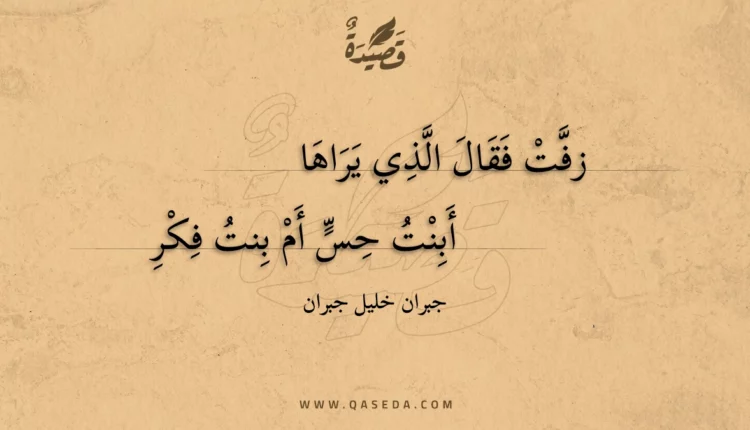 قَصِيْدَةٌ
زفَّتْ فَقَالَ الَّذِي يَرَاهَا
أَبِنْتُ حِسٍّ أَمْ بِنتُ فِكْرِ
جبران خليل جبران
WWW.QASEDA.COM